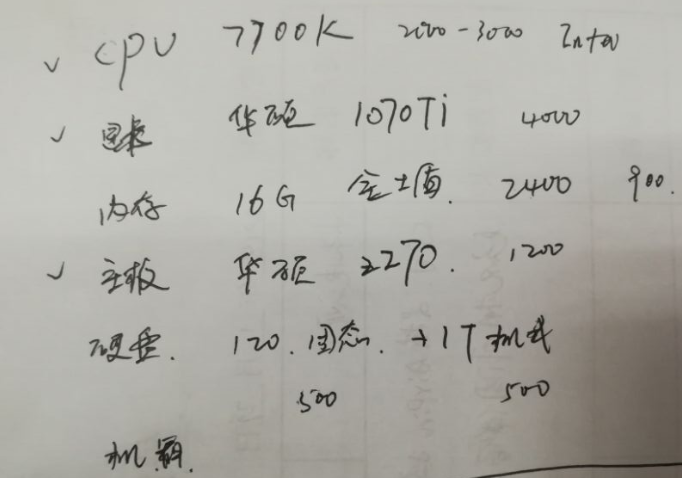 ✓ CPU 7700K 2000-3000 Intel
✓ 显卡 华硕 1070Ti 4000
内存 16G 金士顿. 2400 900.
✓ 主板 华硕 z270. 1200
硬盘. 120.固态. +1T 机械
500 500
机箱.